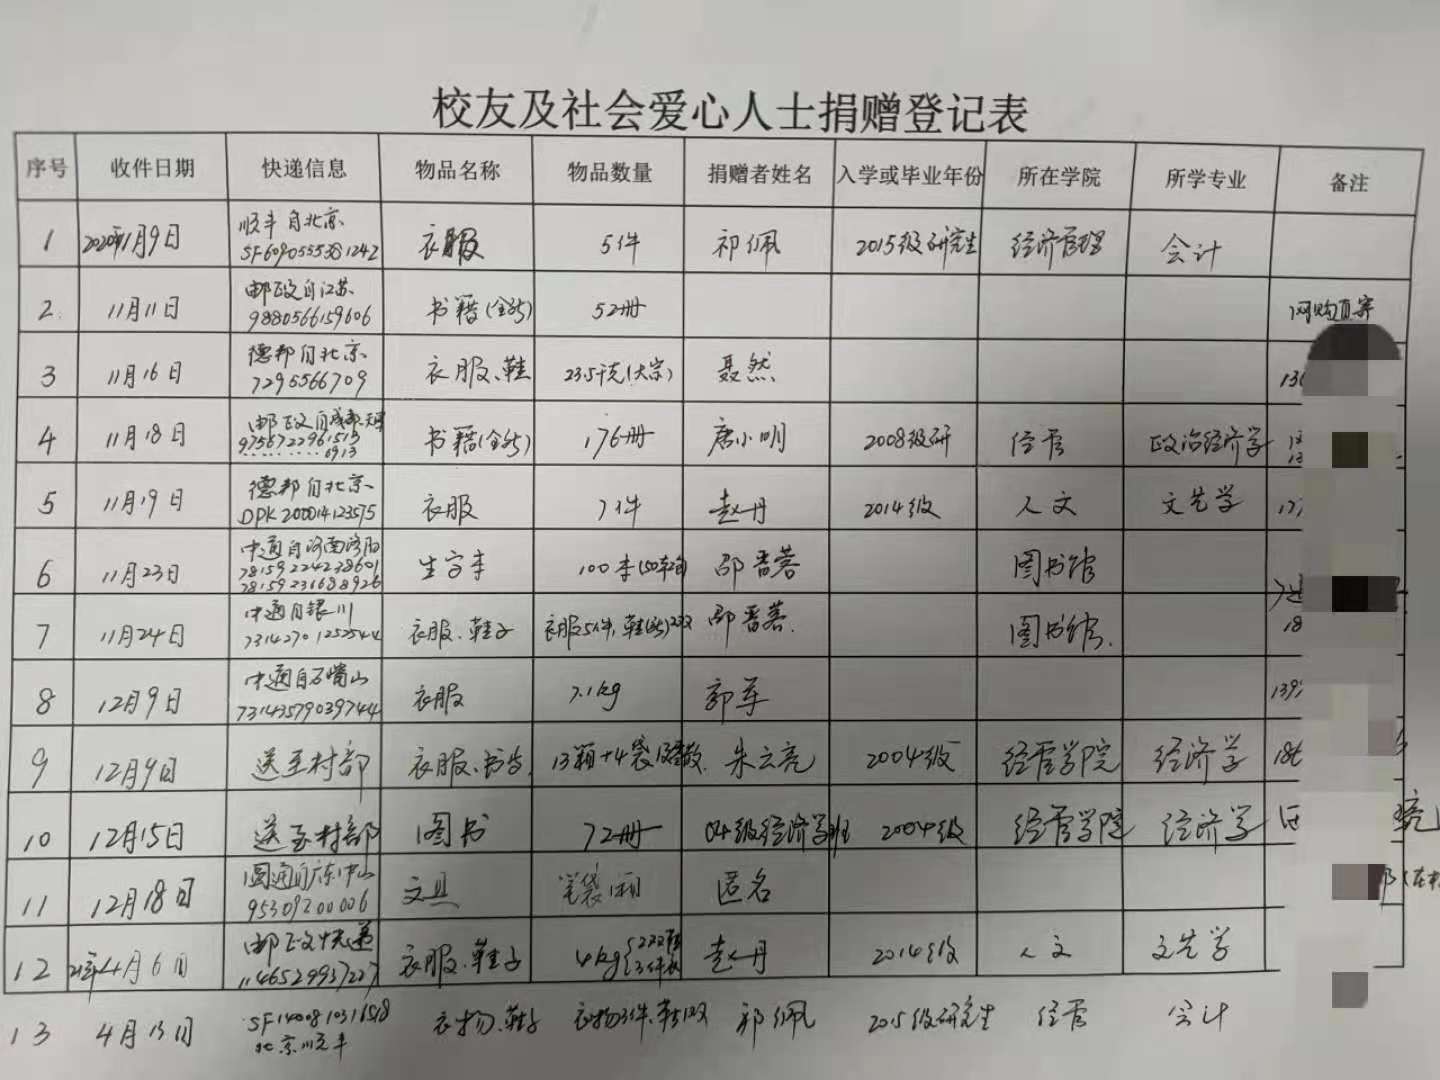 校友及社会爱心人士捐赠登记表
序号 收件日期 快递信息 物品名称 物品数量 捐赠者姓名 入学或毕业年份 所在学院 所学专业 备注
1 2020年11月9日 顺丰自北京 衣服 5件 祁佩 2015级研究生 经济管理 会计
SF6090555381242
2. 11月11日 邮政自江苏 书籍(全新) 52册 网购直寄
9880566159606
3 11月16日 德邦自北京 衣服、鞋 23.5千克(大宗) 聂然
7295566709
4 11月18日 邮政自成都 书籍(全新) 176册 唐小明 2008级研 经管 政治经济学
9756722961513
6913
5 11月19日 德邦自北京 衣服 7件 赵丹 2014级 人文 文艺学
DPK200014123575
6 11月23日 中通自河南洛阳 生字本 100本 邵晋蓉 图书馆
78159224238601
78159231688926
7 11月24日 中通自银川 衣服、鞋子 衣服5件,鞋(新)2双 邵晋蓉. 图书馆.
8 12月9日 中通自石嘴山 衣服 7.1kg 郭军
73143579039744
9 12月9日 送至村部 衣服、书 13箱+4袋 朱云亮 2004级 经管学院 经济学
10 12月15日 送至村部 图书 72册 04级经济学班 2004级 经管学院 经济学
11 12月18日 圆通自广东中山 文具 笔袋1箱 匿名
95309200006
12 21年4月6日 邮政快递 衣服、鞋子 4kg 赵丹 2014级 人文 文艺学
1146529937227
13 4月13日 SF1400810316518 衣物、鞋子 衣物3件、鞋1双 祁佩 2015级研究生 经管 会计
北京顺丰